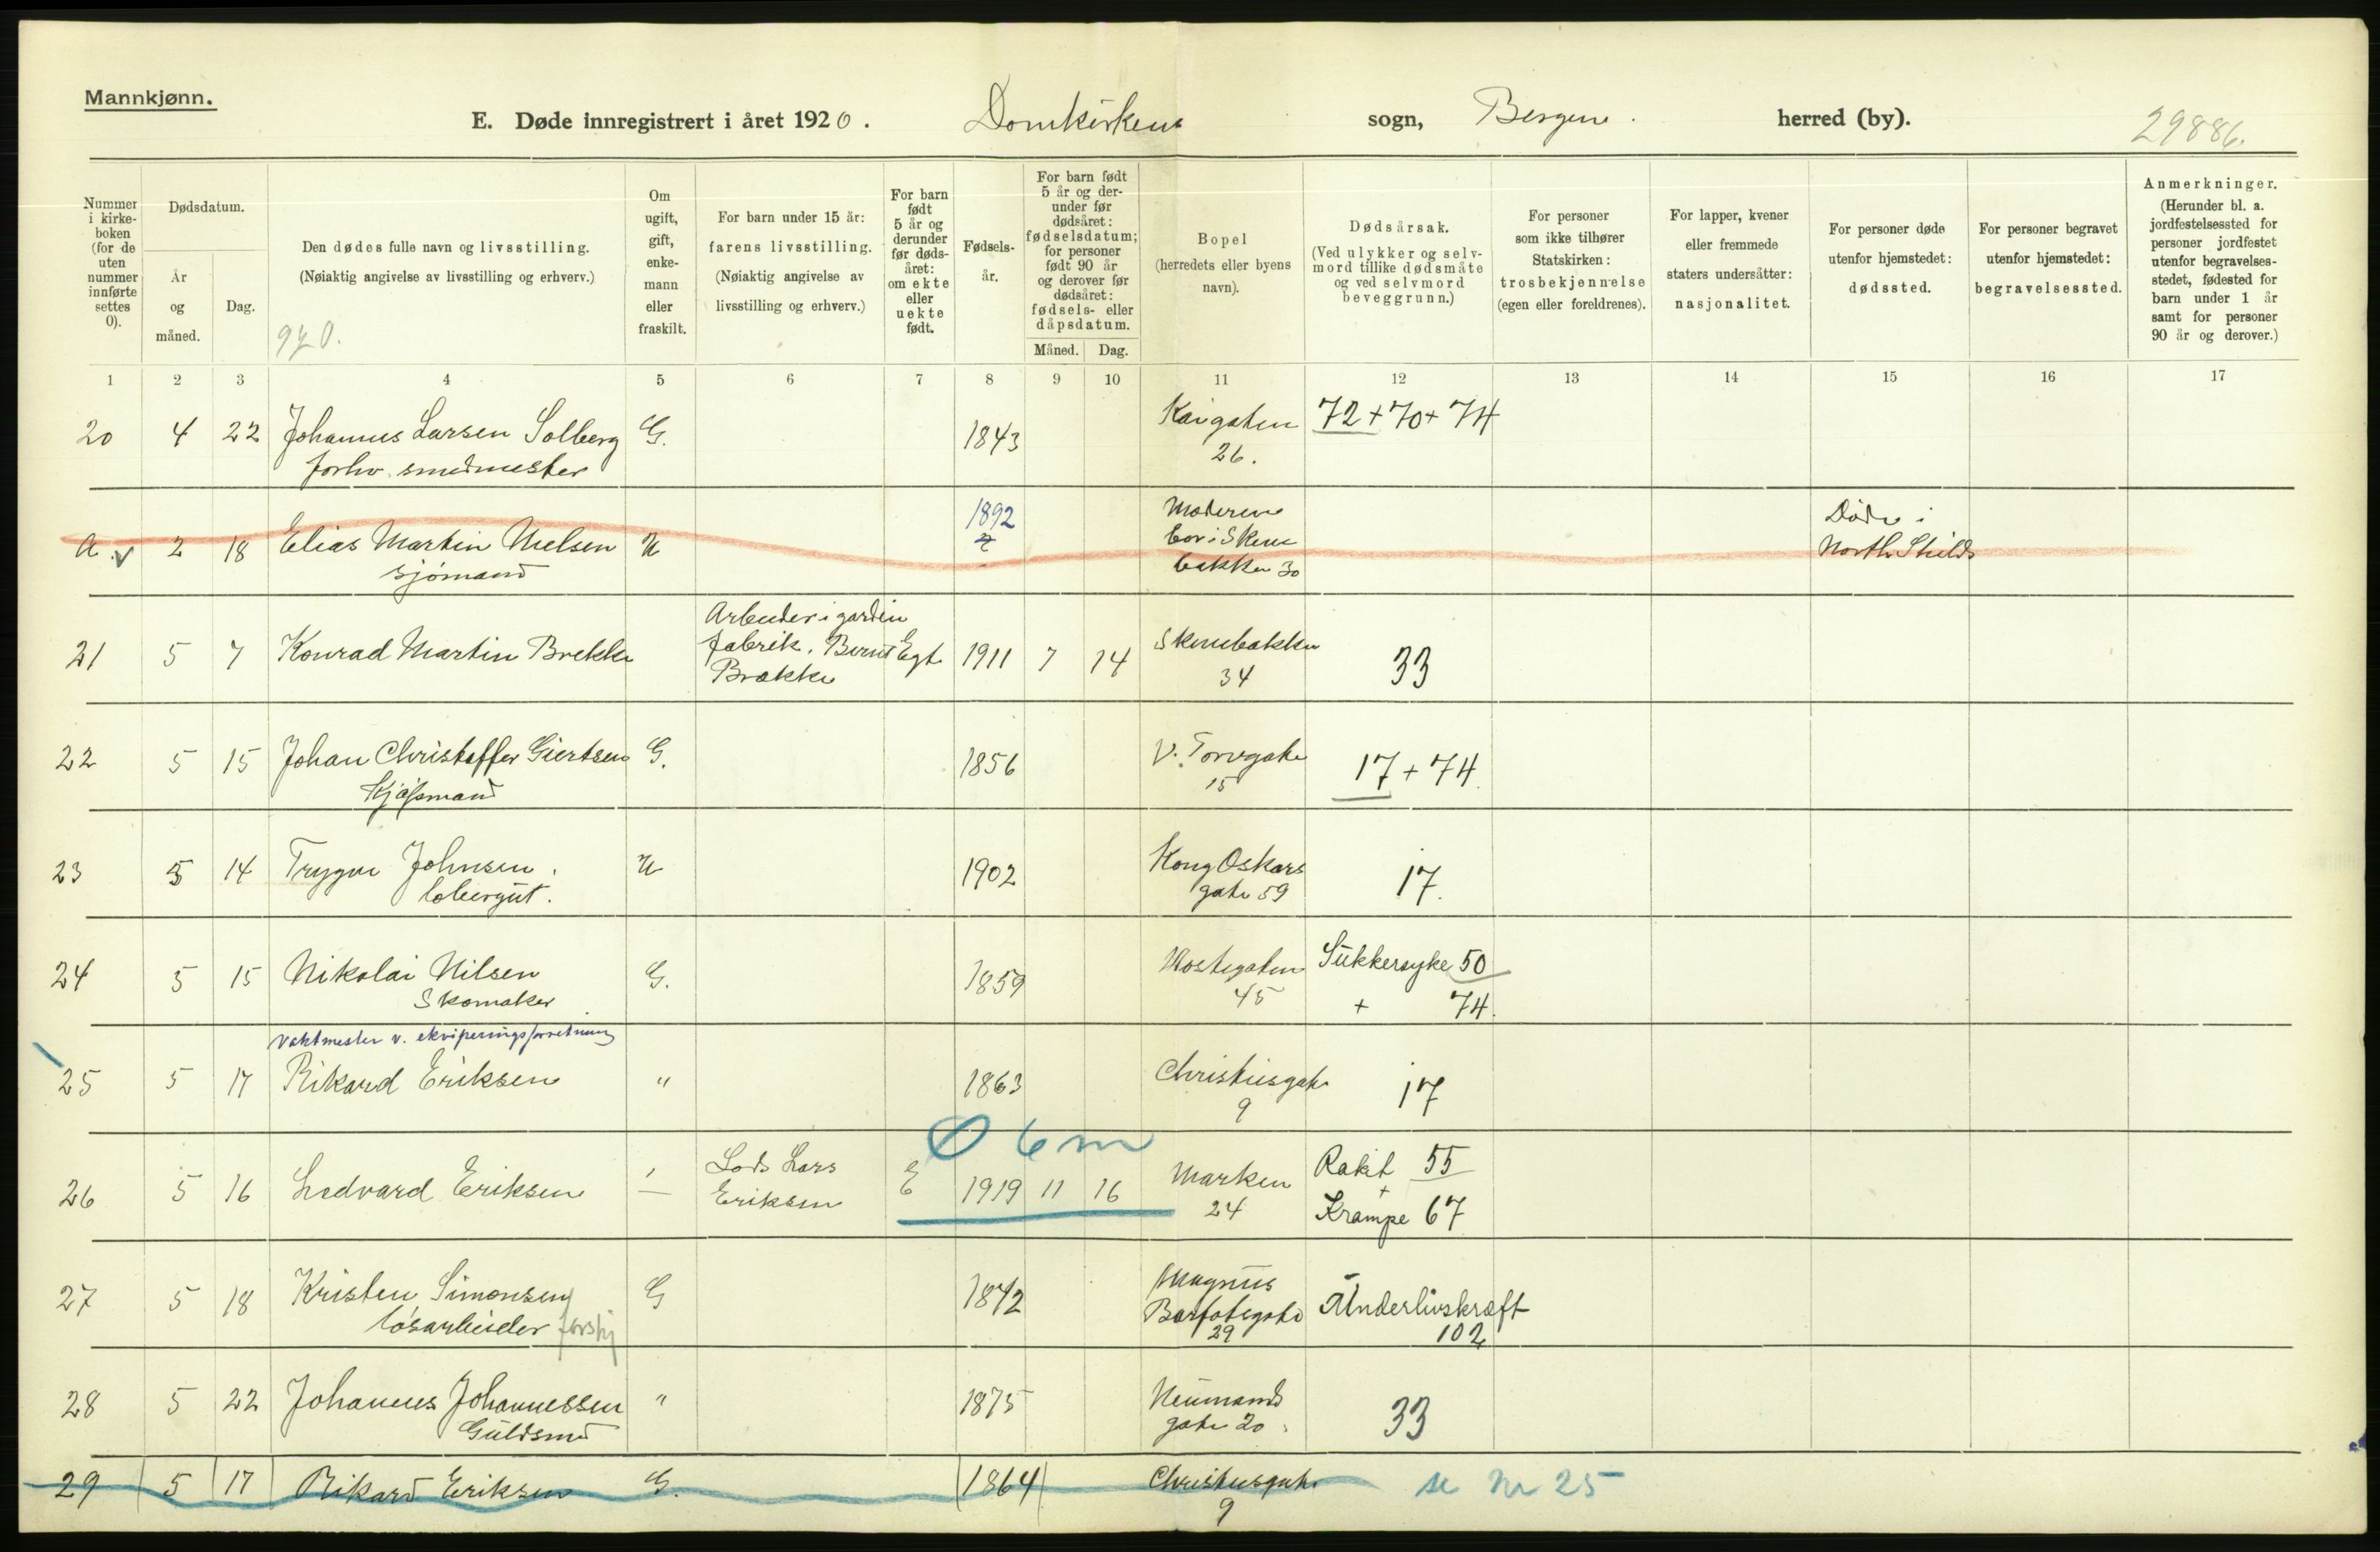 Mannkjønn.
E. Døde innregistrert i året 1920. Domkirken sogn, Bergen. herred (by). 29886.
Nummer i kirke-boken (for de uten nummer innførte settes 0).
Dødsdatum.
År og måned.
Dag.
Den dødes fulle navn og livsstilling.
(Nøiaktig angivelse av livsstilling og erhverv.)
920.
Om ugift, gift, enke-mann eller fraskilt.
For barn under 15 år:
farens livsstilling.
(Nøiaktig angivelse av livsstilling og erhverv.)
For barn født 5 år og derunder før døds-året: om ekte eller uekte født.
Fødsels-år.
For barn født 5 år og der-under før dødsåret: fødselsdatum; for personer født 90 år og derover før dødsåret: fødsels- eller dåpsdatum.
Måned. Dag.
Bopel
(herredets eller byens navn).
Dødsårsak.
(Ved ulykker og selv-mord tillike dødsmåte og ved selvmord beveggrunn.)
For personer som ikke tilhører Statskirken:
trosbekjennelse
(egen eller foreldrenes).
For lapper, kvener eller fremmede staters undersåtter:
nasjonalitet.
For personer døde utenfor hjemstedet:
dødssted.
For personer begravet utenfor hjemstedet:
begravelsessted.
Anmerkninger.
(Herunder bl. a. jordfestelsessted for personer jordfestet utenfor begravelses-stedet, fødested for barn under 1 år samt for personer 90 år og derover.)
1 2 3 4 5 6 7 8 9 10 11 12 13 14 15 16 17
20 4 22 Johannes Larsen Solberg G. 1843 Kaigaten 72 + 70 + 74
forhv. smedmester 26.
1892 Moderen Døde i
a. v 2 18 Elias Martin Nielsen U bor i Skene North Shilds
sjømand bakken 30
Arbeider i gardin
21 5 7 Konrad Martin Brekke fabrik. Bernt Egt 1911 7 14 Skenebakken 33
Brække 34
22 5 15 Johan Christoffer Giertsen G. 1856 V. Torvgate 17 + 74
Kjøpmand 15
23 5 14 Trygve Johnsen. U 1902 Kong Oskars 17.
løbergut. gate 59
24 5 15 Nikolai Nilsen G. 1859 Nostegaten Sukkersyke 50
Skomaker 45 + 74.
Vaktmester v. ekviperingsforretning
25 5 17 Rikard Eriksen " 1863 Christiesgate 17
9
0 6 m
26 5 16 Ledvard Eriksen — Lods Lars E 1919 11 16 Marken Rakit 55
Eriksen 24 + Krampe 67
27 5 18 Kristen Simonsen G 1872 Magnus Underlivskræft
løsarbeider forskj Barfotsgate 102
29
28 5 22 Johannes Johannessen " 1875 Neumanns 33
Guldsmed gate 20.
29 5 17 Rikard Eriksen G. 1864 Christiesgate se nr 25
9